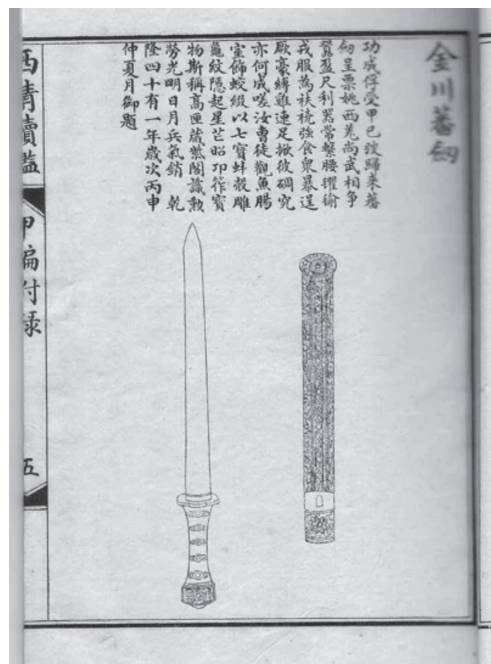 金川蕃劒
功成俘受甲已弢歸來蕃
劒呈票姚西羌尚武相爭
囂盈尺利器常繫腰襌褕
戎服為袄褷強食衆暴逞
厥豪縛雞連足掀破碉究
亦何成嗟汝曹徒觀魚腸
室飾蛟綴以七寶蚌殼雕
龜紋隱起星芒昭卭筰寳
物斯稱高匣藏紫閣識勲
勞光明日月兵氣銷 乾
隆四十有一年歲次丙申
仲夏月御題
西清續鑑
甲編付錄
五